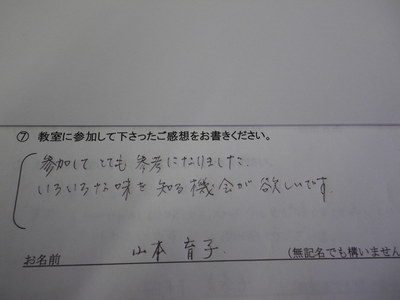 ⑦ 教室に参加して下さったご感想をお書きください。
参加して とても 参考になりました.
いろいろな味を 知る機会が 欲しいです.
お名前 山本 育子. (無記名でも構いません